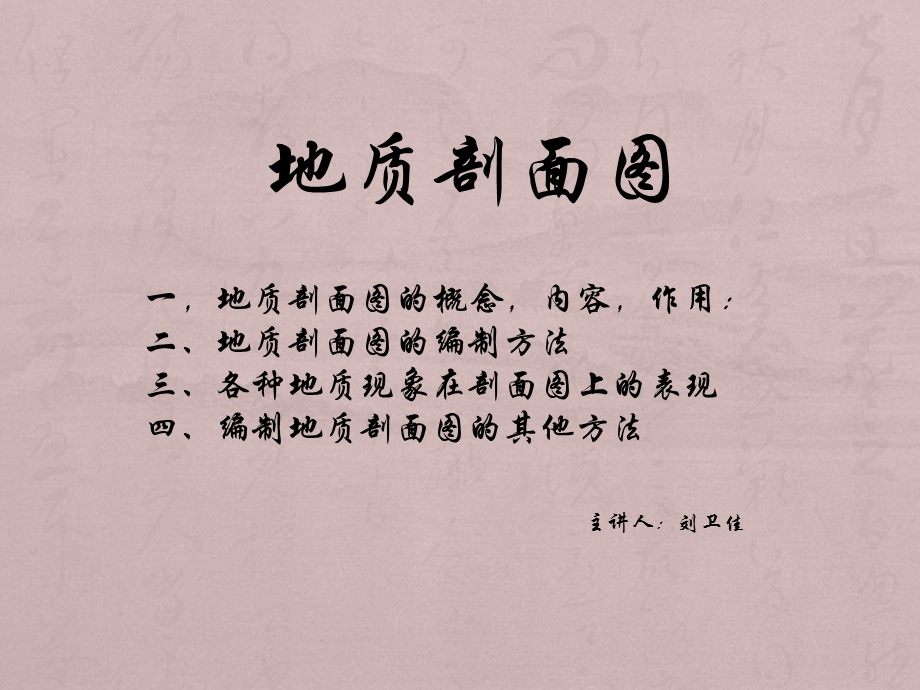 地质剖面图
一，地质剖面图的概念，内容，作用：
二、地质剖面图的编制方法
三、各种地质现象在剖面图上的表现
四、编制地质剖面图的其他方法
主讲人：刘卫佳